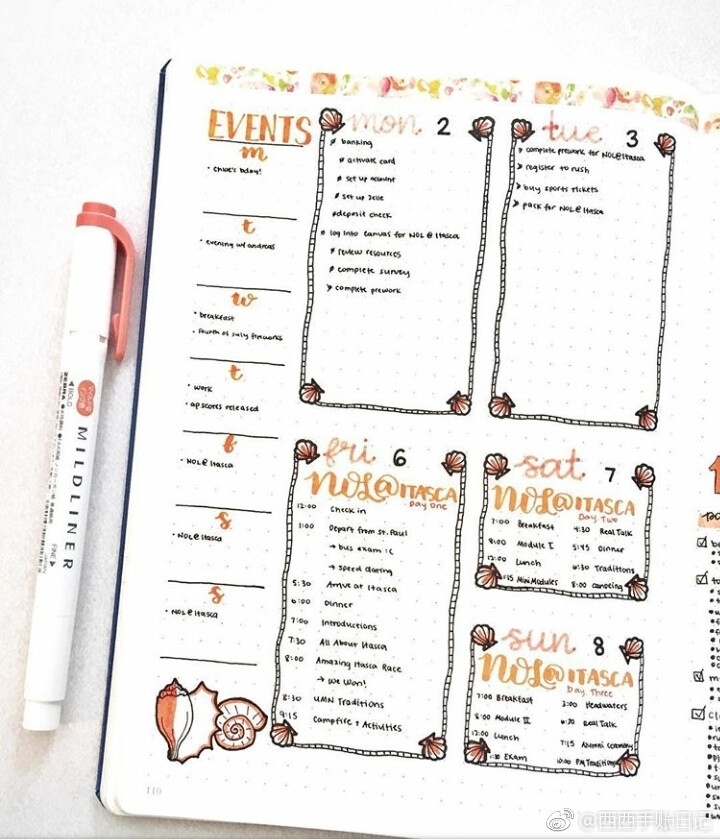 EVENTS
m
• chloe's bday!
t
• evening w/ andreas
w
• breakfast
• fourth of july fireworks
t
• work
• ap scores released
f
• NOL@ Itasca
s
• NOL@ Itasca
s
• NOL@ Itasca
mon 2
banking
activate card
set up account
set up zelle
deposit check
log into canvas for NOL@ Itasca
review resources
complete survey
complete prework
tue 3
complete prework for NOL@Itasca
register to rush
buy sports tickets
pack for NOL@ Itasca
fri 6
NOL@ITASCA
Day One
12:00 Check in
1:00 Depart from St. Paul
→ bus exam :(
→ speed dating
5:30 Arrive at Itasca
6:00 Dinner
7:00 Introductions
7:30 All About Itasca
8:00 Amazing Itasca Race
→ we won!
8:30 UMN Traditions
9:15 Campfire + Activities
sat 7
NOL@ITASCA
Day Two
7:00 Breakfast 4:30 Real Talk
8:00 Module I 5:45 Dinner
12:00 Lunch 6:30 Traditions
:15 Mini Modules 8:00 canoeing
sun 8
NOL@ITASCA
Day Three
7:00 Breakfast 3:00 Headwaters
8:00 Module II 6:30 Real Talk
12:00 Lunch 7:15 Alumni Ceremony
:30 Exam 10:00 PM Traditions
110
BOLD
ZEBRA
MILDLINER
FINE
@西西手账日记